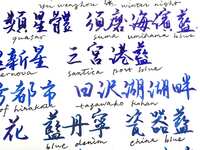 yen wenzhou 4th winter night
類星體 須磨海濱藍
quasar suma umihama blue
新星 三宮港藍
ernova sannica port blue
都市
of hirakata tazawako kohan
田沢湖湖畔
花 藍丹寧 瓷器藍
blue denim china blue